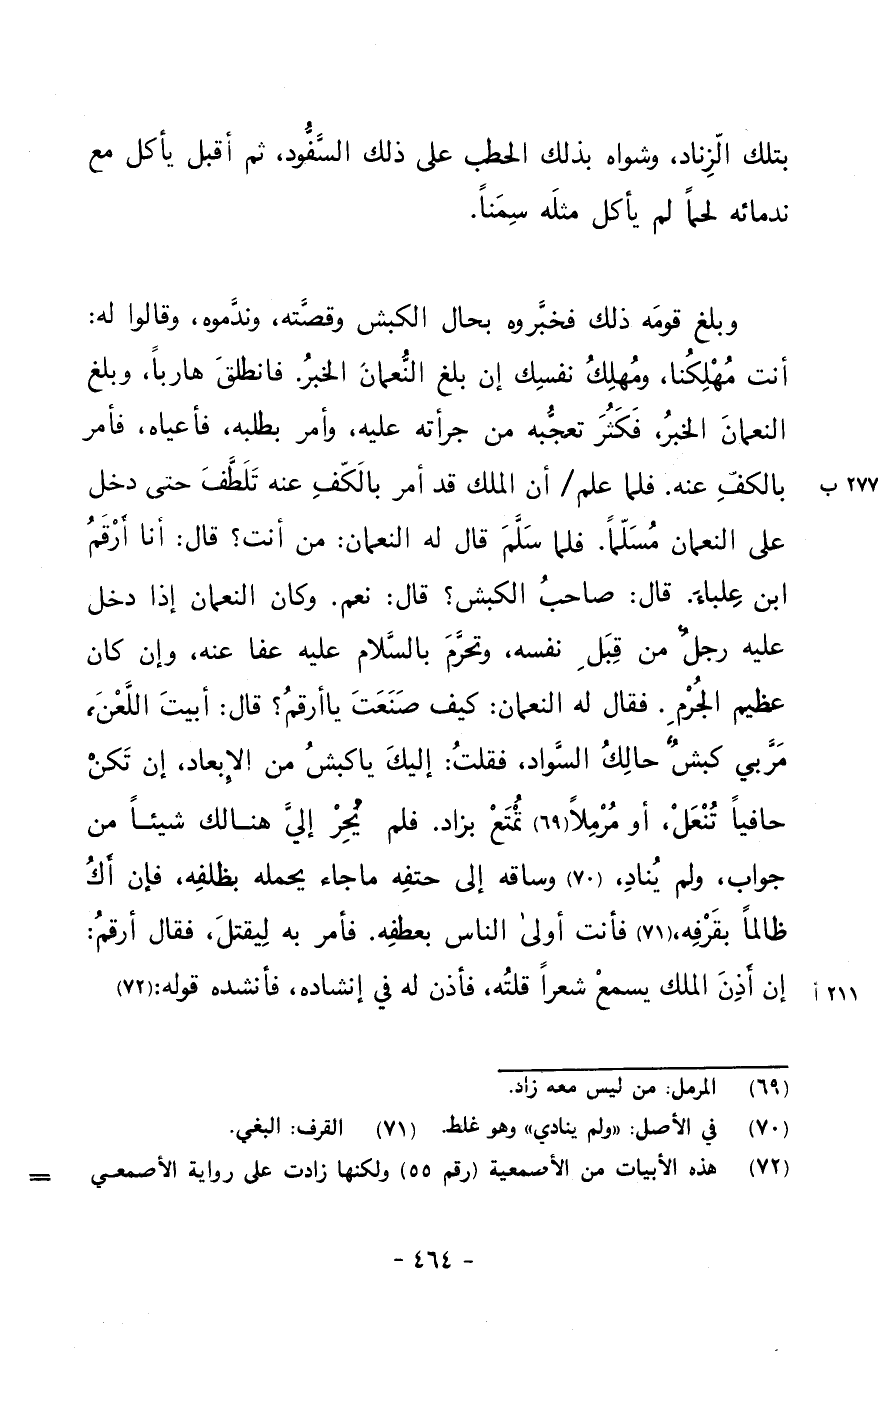 بتلك الزِّناد، وشواه بذلك الحطب على ذلك السَّفُّود، ثم أقبل يأكل مع
ندمائه لحماً لم يأكل مثلَه سِمَناً.
وبلغ قومَه ذلك فخبَّروه بحال الكبش وقصَّته، وندَّموه، وقالوا له:
أنت مُهْلِكُنا، ومُهلِكُ نفسِك إن بلغ النُّعمانَ الخبرُ. فانطلقَ هارباً، وبلغ
النعمانَ الخبرُ، فَكَثُرَ تعجُّبه من جرأته عليه، وأمر بطلبه، فأعياه، فأمر
بالكفِّ عنه. فلما علم/ أن الملك قد أمر بالكَفِّ عنه تَلَطَّفَ حتى دخل ٢٧٧ ب
على النعمان مُسَلِّماً. فلما سَلَّمَ قال له النعمان: من أنت؟ قال: أنا أَرْقَمُ
ابن عِلباءَ. قال: صاحبُ الكبش؟ قال: نعم. وكان النعمان إذا دخل
عليه رجلٌ من قِبَلِ نفسه، وتحرَّمَ بالسَّلام عليه عفا عنه، وإن كان
عظيم الجُرْمِ. فقال له النعمان: كيف صَنَعَتَ ياأرقمُ؟ قال: أبيتَ اللَّعْنَ،
مَرَّبي كبشٌ حالِكُ السَّواد، فقلتُ: إليكَ ياكبشُ من الإِبعاد، إن تَكنْ
حافياً تُنْعَلْ، أو مُرْمِلاً(٦٩) تُمْتَعْ بزاد. فلم يُحِرْ إليَّ هنالك شيئاً من
جواب، ولم يُنادِ، (٧٠) وساقه إلى حتفِه ماجاء يحمله بظلفِه، فإن أَكُ
ظالماً بقَرْفِه،(٧١) فأنت أولىٰ الناس بعطفِه. فأمر به لِيقتلَ، فقال أرقمُ:
إن أَذِنَ الملك يسمعْ شعراً قلتُه، فأذن له في إنشاده، فأنشده قوله:(٧٢) ٢١١ أ
(٦٩) المرمل: من ليس معه زاد.
(٧٠) في الأصل: «ولم ينادي» وهو غلط. (٧١) القرف: البغي.
(٧٢) هذه الأبيات من الأصمعية (رقم ٥٥) ولكنها زادت على رواية الأصمعي =
- ٤٦٤ -